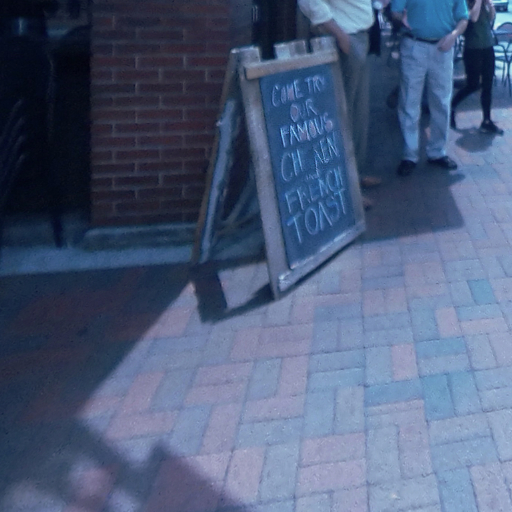 COME TRY
OUR
FAMOUS
CHICKEN
and
FRENCH
TOAST